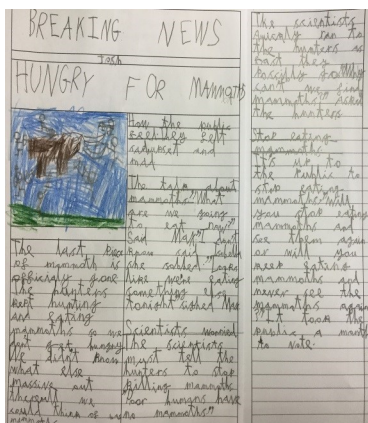 BREAKING NEWS
Josh
HUNGRY FOR MAMMOTHS
The last piece
of mammoth is
officially gone
The hunters
kept hunting
and eating
mammoths so we
get hungry
We didn't know
what else
massive out
there we
could think of
mammoths
How the public
feel they felt
and
mad
The talk about
mammoths "What
are we going
to eat now?"
Said May "I don't
know said
she sobbed "Looks
like we're eating
something else
tonight sighed Max
Scientists worried
The scientists
must tell the
hunters to stop
killing mammoths
"Poor humans have
no mammoths"
The scientists
quickly ran to
the hunters as
fast they
"Why
can't we find
mammoths" asked
the hunters
Stop eating
mammoths
It's up to
the Public to
stop eating
mammoths will
you stop eating
mammoths and
see them again
or will you
keep eating
mammoths and
never see the
mammoths again
"It took the
public a month
to vote.